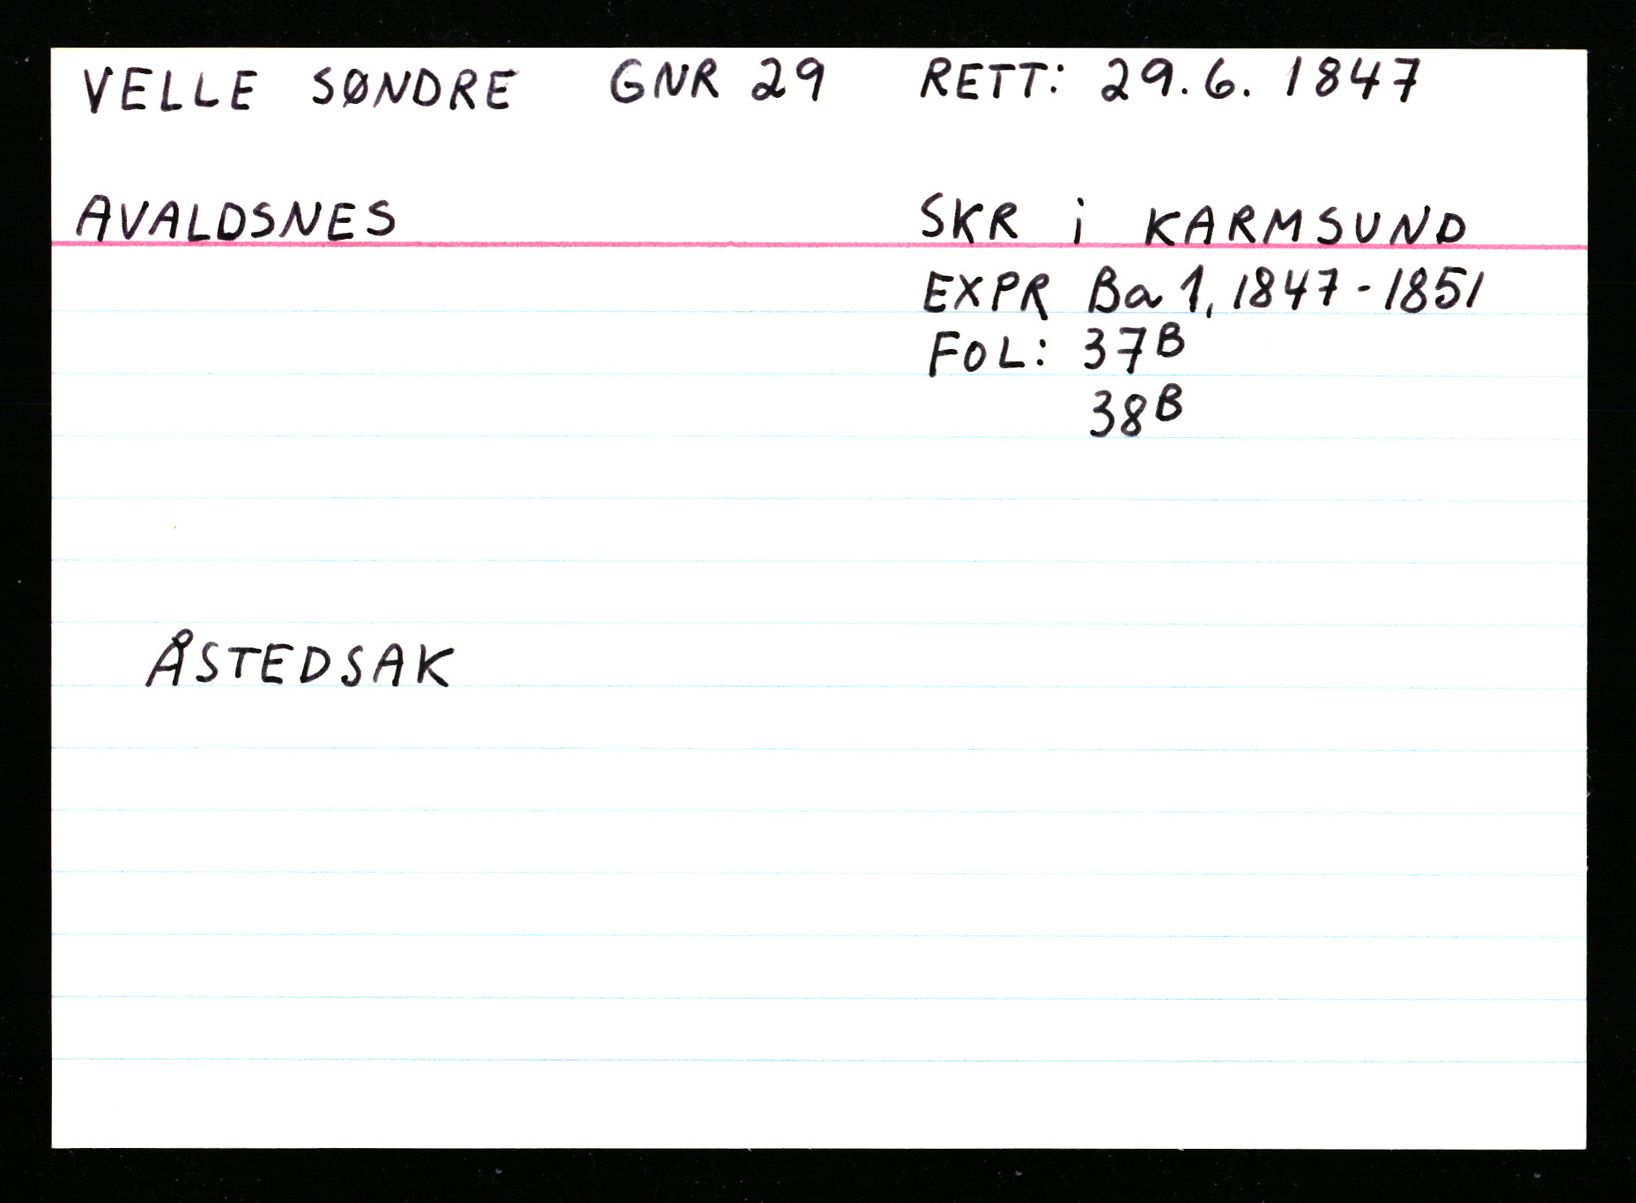 VELLE SØNDRE GNR 29 RETT: 29.6. 1847
AVALDSNES SKR i KARMSUND
EXPR Ba 1, 1847-1851
FOL: 37B
38B
ÅSTEDSAK